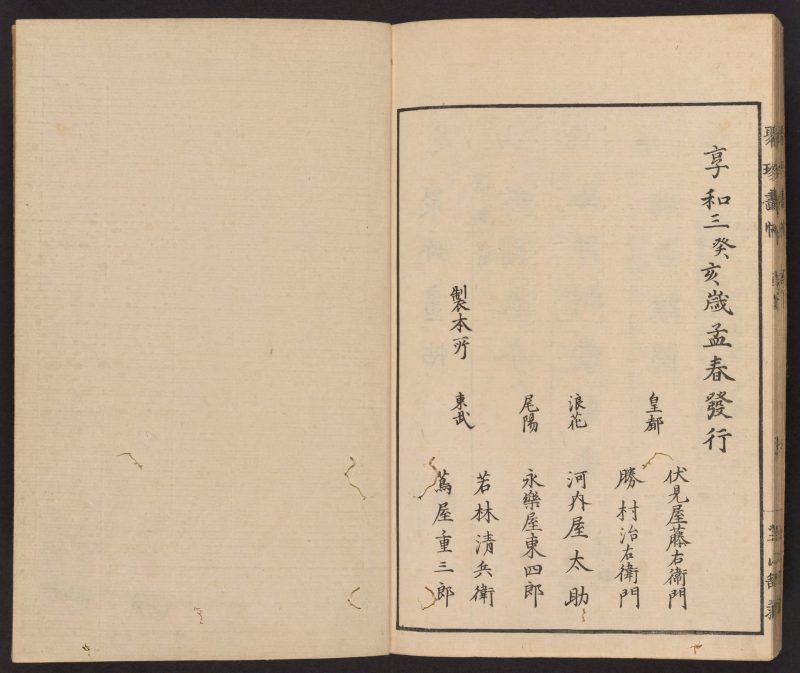 享和三癸亥歳孟春發行
皇都
伏見屋藤右衛門
勝村治右衛門
浪花
河内屋太助
尾陽
永樂屋東四郎
製本所
東武
若林清兵衛
蔦屋重三郎
畫帖